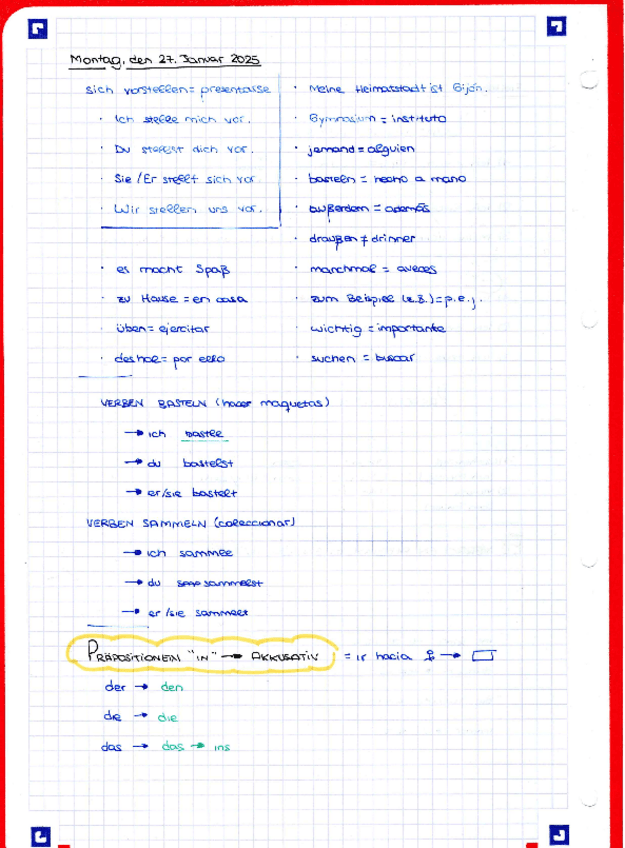 Montag, den 27. Januar 2025
sich vorstellen = presentasse
· Ich stelle mich vor.
· Du stellst dich vor.
· Sie / Er stellt sich vor.
· Wir stellen uns vor.
· es macht Spaß
· zu Hause = en casa
· üben = ejercitar
· deshal = por ello
· Meine Heimatstadt ist Gijón.
· Gymnasium = instituto
· jemand = alguien
· basteln = hecho a mano
· außerdem = además
· draußen ≠ drinner
· manchmal = aveces
· zum Beispiel (z.B.) = p.e.j.
· wichtig = importante
· suchen = buscar
VERBEN BASTELN (hacer maquetas)
→ ich bastle
→ du bastelst
→ er/sie bastelt
VERBEN SAMMELN (coleccionar)
→ ich sammle
→ du sammelst
→ er/sie sammelt
PRÄPOSITIONEIN "IN" → AKKUSATIV = ir hacia →
der → den
die → die
das → das → ins